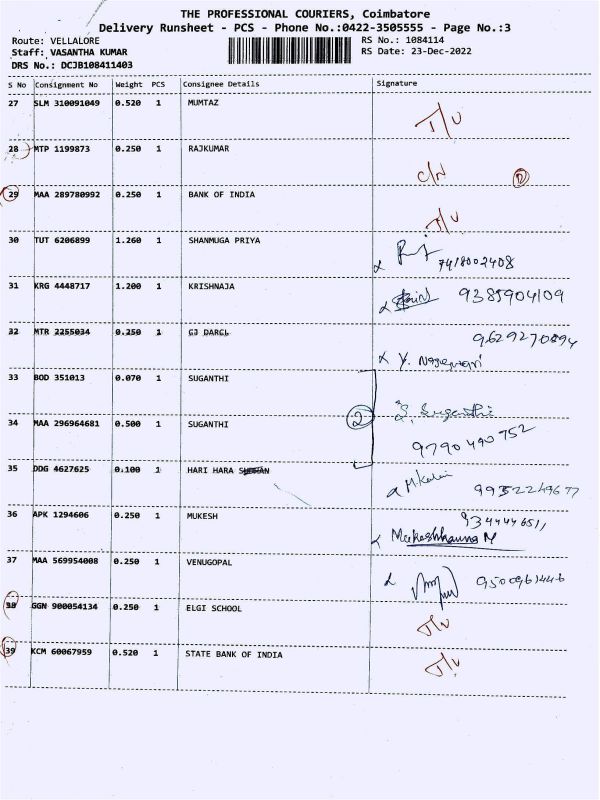 THE PROFESSIONAL COURIERS, Coimbatore
Delivery Runsheet - PCS - Phone No.:0422-3505555 - Page No.:3
Route: VELLALORE
RS No.: 1084114
Staff: VASANTHA KUMAR
RS Date: 23-Dec-2022
DRS No.: DCJB108411403
S No Consignment No Weight PCS Consignee Details Signature
27 SLM 310091049 0.520 1 MUMTAZ
T/U
28 MTP 1199873 0.250 1 RAJKUMAR
C/N
29 MAA 289780992 0.250 1 BANK OF INDIA
T/U
30 TUT 6206899 1.260 1 SHANMUGA PRIYA
7418002408
31 KRG 4448717 1.200 1 KRISHNAJA
9385904109
32 MTR 2255034 0.250 1 CJ DARCL
9629270894
33 BOD 351013 0.070 1 SUGANTHI
S. Suganthi
34 MAA 296964681 0.500 1 SUGANTHI
2
9790490752
35 DDG 4627625 0.100 1 HARI HARA
9952249677
36 APK 1294606 0.250 1 MUKESH
9344446511
37 MAA 569954008 0.250 1 VENUGOPAL
9500961446
38 GGN 900054134 0.250 1 ELGI SCHOOL
T/U
39 KCM 60067959 0.520 1 STATE BANK OF INDIA
T/U